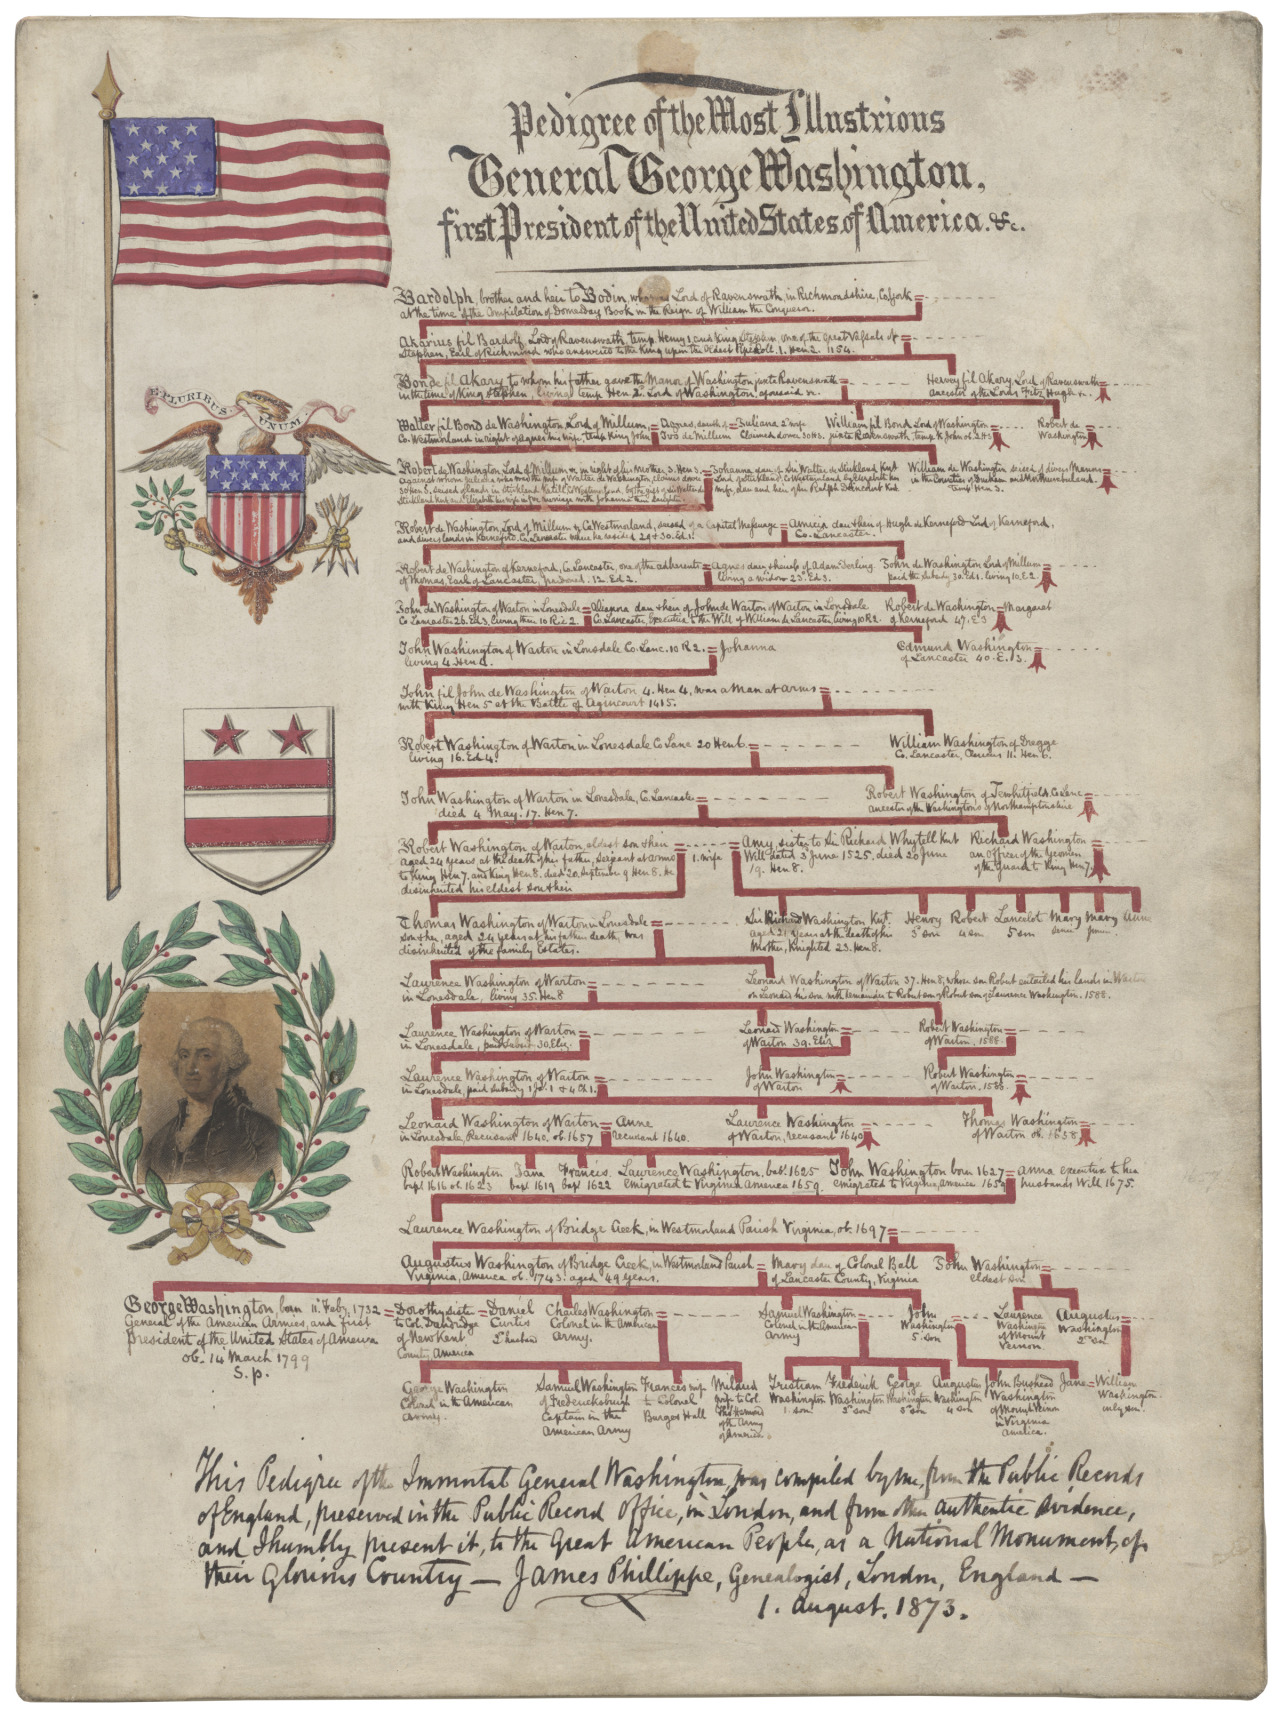 Pedigree of the Most Illustrious
General George Washington,
first President of the United States of America. &c.
E PLURIBUS UNUM
Bardolph, brother and heir to Bodin, who was Lord of Ravenswath, in Richmondshire, Co. York =
at the time of the Compilation of Domesday Book in the Reign of William the Conqueror.
Akarius fil Bardolf, Lord of Ravenswath, temp. Henry 1 and King Stephen, one of the great Vassals of =
Stephen, Earl of Richmond who answered to the King upon the Oldest Pipe Roll. 1. Hen 2. 1154.
Bonde fil Akary to whom his father gave the Manor of Washington juxta Ravenswath =
in the time of King Stephen, living temp Hen 2. Lord of Washington, aforesaid &c.
Hervey fil Akery Lord of Ravenswath =
ancestor of the Lords Fitz Hugh &c.
Walter fil Bond de Washington Lord of Millum, =
Co. Westmorland in right of Agnes his wife, temp King John
Agnes, daur of = Juliana 2nd wife
de Millum Claimed dower 30 H3.
William fil Bond Lord of Washington =
juxta Ravenswath, temp K. John &
Robert de
Washington
Robert de Washington Lord of Millum in right of his Mother, 3. Hen 3. =
Johanna dau of Sir Walter de Stickland Knt
Lord of Stickland, Co Westmorland by Elizabeth his
wife, dau and heir of Sir Ralph Knt.
William de Washington seized of divers Manors =
in the Counties of Durham and Northumberland.
temp Hen 3.
Robert de Washington Lord of Millum, Co Westmorland, seized of a Capital Messuage = Amicia dau & heir of Hugh de Kerneford Lord of Kerneford,
and divers lands in Kerneford, Co. Lancaster where he resided 29 & 30. Ed 1. Co. Lancaster.
Robert de Washington of Kerneford, Co. Lancaster, one of the adherents = Agnes dau & heir of Adam
of Thomas, Earl of Lancaster, pardoned. 12. Ed 2. living a widow 23. Ed 3.
John de Washington Lord of Millum =
paid the subsidy 30. Ed 1. living 10. E 2.
John de Washington of Warton in Lonesdale = Elianora dau & heir of John de Warton of Warton in Lonsdale
Co Lancaster 26. Ed 3. living then 10 Ric 2. Co. Lancaster, Executrix to the Will of William de Lancaster, living 10 R 2.
Robert de Washington = Margaret
of Kerneford 47. E 3
John Washington of Warton in Lonsdale Co. Lanc. 10 R 2. = Johanna
living 4 Hen 4.
Edmund Washington =
of Lancaster 40. E. 3.
John fil John de Washington of Warton 4. Hen 4, was a Man at Arms =
with King Hen 5 at the Battle of Agincourt 1415.
Robert Washington of Warton in Lonesdale Co Lanc 20 Hen 6. =
living 16. Ed 4.
William Washington of Dragge
Co. Lancaster, 11. Hen 6.
John Washington of Warton in Lonesdale, Co. Lancaster =
died 4 May. 17. Hen 7.
Robert Washington of Tewhitfeld, Co Lanc =
ancestor of the Washingtons of Northamptonshire
Robert Washington of Warton, eldest son & heir =
aged 24 Years at the death of his father, Serjeant at Arms
to King Hen 7. and King Hen 8. died 20. September 9 Hen 8. He
disinherited his eldest son & heir
1. wife
= Amy, sister to Sir Richard Whytell Knt
Will dated 3 June 1525, died 20 June
19. Hen 8.
Richard Washington =
an Officer of the Yeomen
of the Guard to King Hen 7.
Thomas Washington of Warton in Lonesdale =
son & heir, aged 24 years at his fathers death, was
disinherited of the family Estates.
Sir Richard Washington Knt.
aged 21 Years at the death of his
Mother, Knighted 23. Hen 8.
Henry Robert Lancelot Mary Mary Anne
3d son 4 son 5 son senr junr
Laurence Washington of Warton =
in Lonesdale, living 35. Hen 8
Leonard Washington of Warton 37. Hen 8, whose son Robert entailed his lands in Warton
on Leonard his son with remainder to Robert son of Robert son of Laurence Washington. 1588.
Laurence Washington of Warton =
in Lonesdale, paid subsidy 30. Eliz.
Leonard Washington =
of Warton 39. Eliz
Robert Washington =
of Warton, 1588.
Laurence Washington of Warton =
in Lonesdale, paid subsidy 1 Ja. 1 & 4 Ch 1.
John Washington =
of Warton
Robert Washington =
of Warton, 1588.
Leonard Washington of Warton = Anne
in Lonesdale, Recusant 1640. ob. 1657 recusant 1640.
Laurence Washington
of Warton, recusant 1640
Thomas Washington =
of Warton ob. 1658
Robert Washington Jane Francis. Laurence Washington, bapt. 1625 John Washington born 1627 = Anna executrix to her
bapt 1616 ob. 1623 bapt 1619 bapt 1622 emigrated to Virginia America 1659. emigrated to Virginia, America 1659 husbands Will 1675.
Laurence Washington of Bridge Creek, in Westmorland Parish Virginia, ob. 1697 =
Augustus Washington of Bridge Creek, in Westmorland Parish = Mary dau of Colonel Ball John Washington =
Virginia, America ob. 1743. aged 49 years. of Lancaster County, Virginia eldest son
George Washington, born 11. Feby. 1732 =
General of the American Armies, and first
President of the United States of America
ob. 14 March 1799
S. p.
Dorothy sister =
to Col. Dandridge
of New Kent
County, America
Daniel
Curtis
1 husband
Charles Washington =
Colonel in the American
Army.
Samuel Washington =
Colonel in the American
Army
John
Washington =
5. son
Laurence
Washington
of Mount
Vernon.
Augustus =
Washington
2nd son
George Washington
Colonel in the American
Army.
Samuel Washington
of Fredericksburgh
Captain in the
American Army
Frances wife
to Colonel
Burges Hall
Mildred
wife to Col.
of the Army
of America.
Tristram Frederick George Augustus
Washington Washington Washington Washington
1. son. 2nd son 3d son 4 son
John Bushead
Washington
of Mount Vernon
in Virginia
America.
Jane =
William
Washington.
only son.
This Pedigree of the Immortal General Washington, was compiled by me, from the Public Records
of England, preserved in the Public Record Office, in London, and from other authentic Evidence,
and I humbly present it, to the Great American People, as a National Monument, of
their Glorious Country — James Phillippe, Genealogist, London, England —
1. August. 1873.